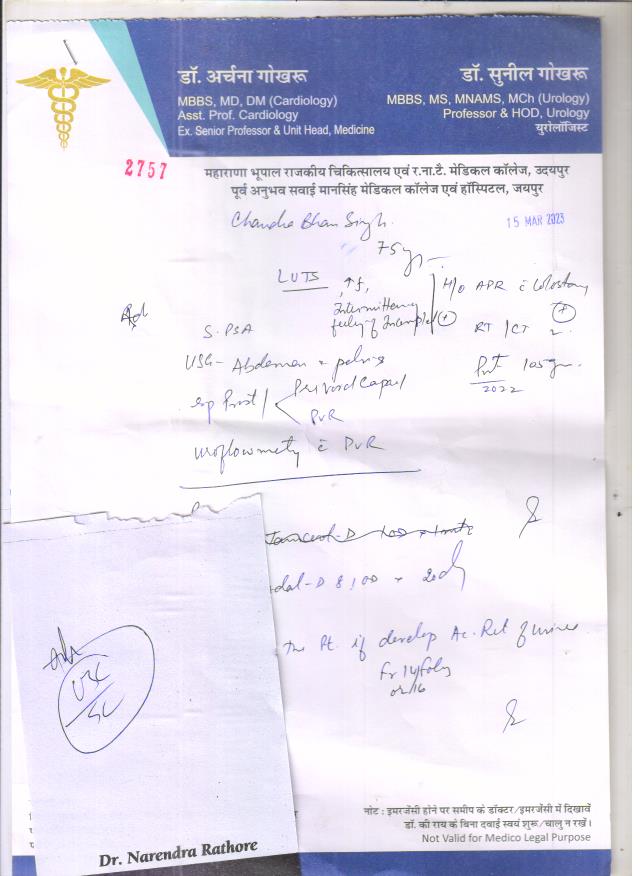 डॉ. अर्चना गोखरू
MBBS, MD, DM (Cardiology)
Asst. Prof. Cardiology
Ex. Senior Professor & Unit Head, Medicine
डॉ. सुनील गोखरू
MBBS, MS, MNAMS, MCh (Urology)
Professor & HOD, Urology
यूरोलॉजिस्ट
2757
महाराणा भूपाल राजकीय चिकित्सालय एवं र.ना.टै. मेडिकल कॉलेज, उदयपुर
पूर्व अनुभव सवाई मानसिंह मेडिकल कॉलेज एवं हॉस्पिटल, जयपुर
Chandra Bhan Singh
15 MAR 2023
75 yr
LUTS ↑f,
Intermittency
H/O APR c̄ Colostomy
Adv
S. PSA
RT/CT
USG - Abdomen + pelvis
Prost 105 gm
2022
Prost
Prevoid
PVR
Uroflowmetry c̄ PVR
-D 8, 1 OD
the Pt. if develop Ac. Ret of urine
Fr 14 Foley
or 16
Dr. Narendra Rathore
नोट : इमरजेंसी होने पर समीप के डॉक्टर/इमरजेंसी में दिखावें
डॉ. की राय के बिना दवाई स्वयं शुरू/चालु न रखें।
Not Valid for Medico Legal Purpose